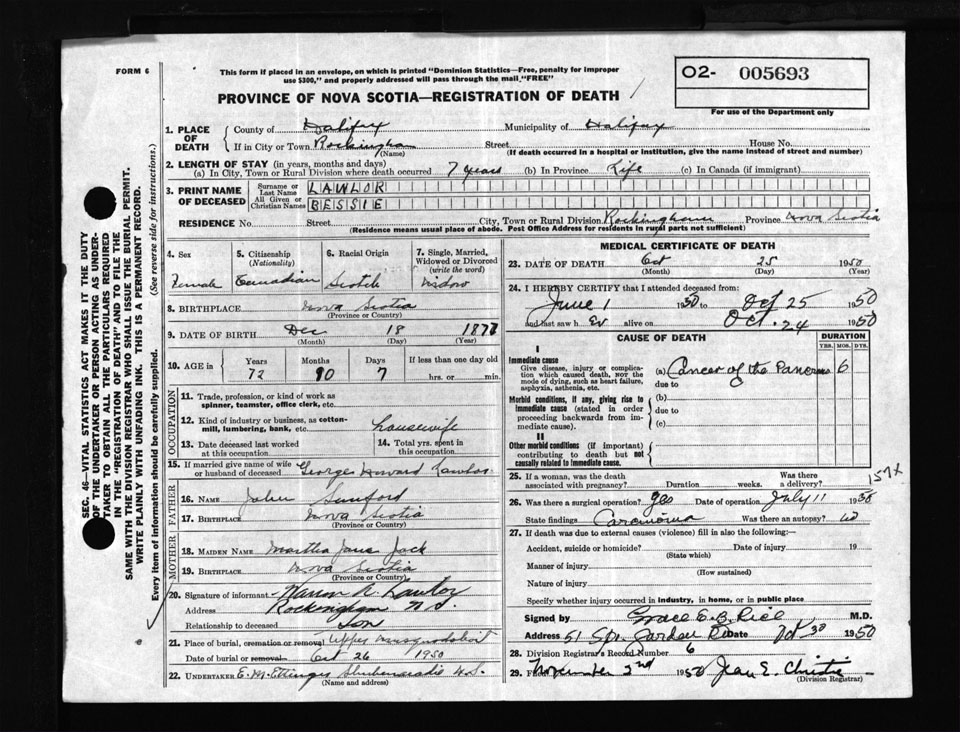 FORM 6
This form if placed in an envelope, on which is printed "Dominion Statistics—Free, penalty for improper
use $300," and properly addressed will pass through the mail "FREE"
PROVINCE OF NOVA SCOTIA—REGISTRATION OF DEATH
O2- 005693
For use of the Department only
SEC. 46—VITAL STATISTICS ACT MAKES IT THE DUTY
OF THE UNDERTAKER OR PERSON ACTING AS UNDER-
TAKER TO OBTAIN ALL THE PARTICULARS REQUIRED
IN THE "REGISTRATION OF DEATH" AND TO FILE THE
SAME WITH THE DIVISION REGISTRAR WHO SHALL ISSUE THE BURIAL PERMIT.
WRITE PLAINLY WITH UNFADING INK. THIS IS A PERMANENT RECORD.
Every item of information should be carefully supplied. (See reverse side for instructions.)
1. PLACE OF DEATH
County of Halifax Municipality of Halifax
If in City or Town Rockingham Street House No.
(Name) (If death occurred in a hospital or institution, give the name instead of street and number)
2. LENGTH OF STAY (in years, months and days)
(a) In City, Town or Rural Division where death occurred 7 years (b) In Province Life (c) In Canada (if immigrant)
3. PRINT NAME OF DECEASED
Surname or Last Name LAWLOR
All Given or Christian Names BESSIE
RESIDENCE No. Street City, Town or Rural Division Rockingham Province Nova Scotia
(Residence means usual place of abode. Post Office Address for residents in rural parts not sufficient)
4. Sex Female
5. Citizenship (Nationality) Canadian
6. Racial Origin Scotch
7. Single, Married, Widowed or Divorced (write the word) Widow
8. BIRTHPLACE Nova Scotia
(Province or Country)
9. DATE OF BIRTH Dec 18 1877
(Month) (Day) (Year)
10. AGE in Years Months Days If less than one day old
72 10 7 hrs. or min.
OCCUPATION
11. Trade, profession, or kind of work as
spinner, teamster, office clerk, etc.
12. Kind of industry or business, as cotton-
mill, lumbering, bank, etc. housewife
13. Date deceased last worked
at this occupation
14. Total yrs. spent in
this occupation
15. If married give name of wife
or husband of deceased George Howard Lawlor
FATHER
16. NAME John
17. BIRTHPLACE Nova Scotia
(Province or Country)
MOTHER
18. MAIDEN NAME Martha Jane Jack
19. BIRTHPLACE Nova Scotia
(Province or Country)
20. Signature of informant A. Lawlor
Address Rockingham N.S.
Relationship to deceased Son
21. Place of burial, cremation or removal Upper Musquodoboit
Date of burial or removal Oct 26 1950
22. UNDERTAKER E. M. Ettinger Shubenacadie N.S.
(Name and address)
MEDICAL CERTIFICATE OF DEATH
23. DATE OF DEATH Oct 25 1950
(Month) (Day) (Year)
24. I HEREBY CERTIFY that I attended deceased from:
June 1 1950 to Oct 25 1950
and last saw her alive on Oct. 24 1950
CAUSE OF DEATH
DURATION
YRS. MOS. DYS.
I
Immediate cause
Give disease, injury or complica-
tion which caused death, NOT the
mode of dying, such as heart failure,
asphyxia, asthenia, etc.
(a) Cancer of the Pancreas 6
due to
Morbid conditions, if any, giving rise to
immediate cause (stated in order
proceeding backwards from im-
mediate cause).
(b)
due to
(c)
II
Other morbid conditions (if important)
contributing to death but not
causally related to immediate cause.
157x
25. If a woman, was the death
associated with pregnancy? Duration weeks. Was there
a delivery?
26. Was there a surgical operation? yes Date of operation July 11 1950
State findings Carcinoma Was there an autopsy? no
27. If death was due to external causes (violence) fill in also the following:—
Accident, suicide or homicide? Date of injury 19
(State which)
Manner of injury
(How sustained)
Nature of injury
Specify whether injury occurred in industry, in home, or in public place
Signed by Grace E. B. Rice M.D.
Address 51 Spr. Garden Rd Date Oct 30 1950
28. Division Registrar's Record Number 6
29. Filed November 2nd 1950 Jean E. Christie
(Division Registrar)